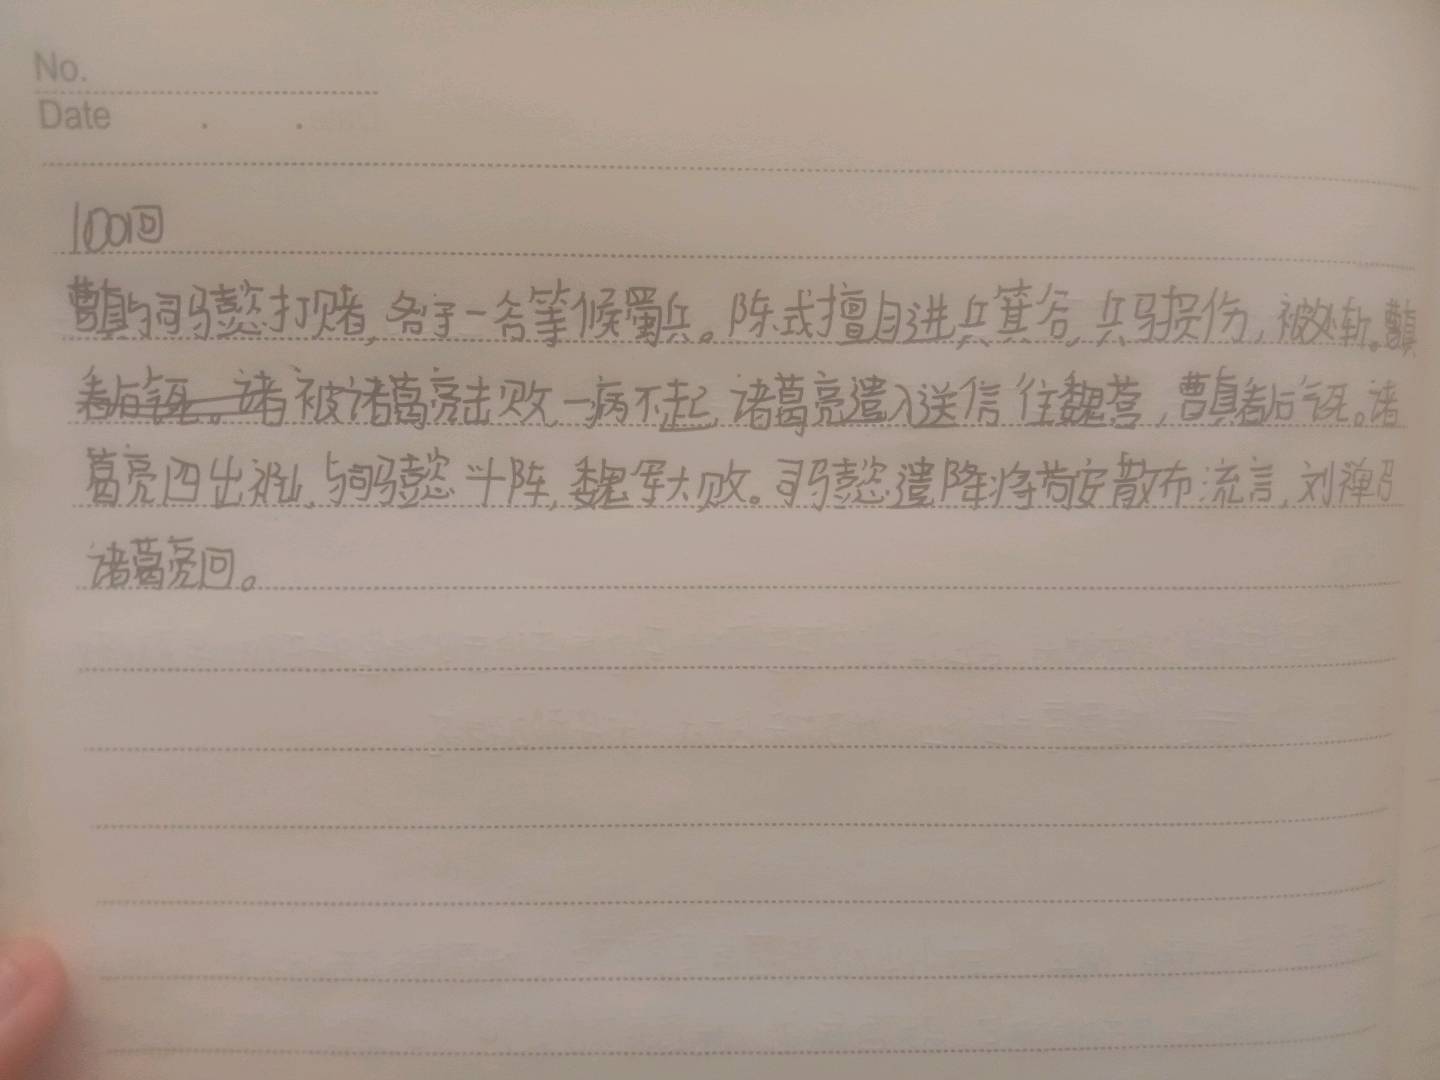 No.
Date . .
100回
曹真与司马懿打赌,各守一谷等候蜀兵。陈式擅自进兵箕谷,兵马损伤,被处斩。曹真
看后气死。诸被诸葛亮击败,一病不起,诸葛亮遣人送信往魏营,曹真看后气死。诸
葛亮四出祁山,与司马懿斗阵,魏军大败。司马懿遣降将苟安散布流言,刘禅召
诸葛亮回。